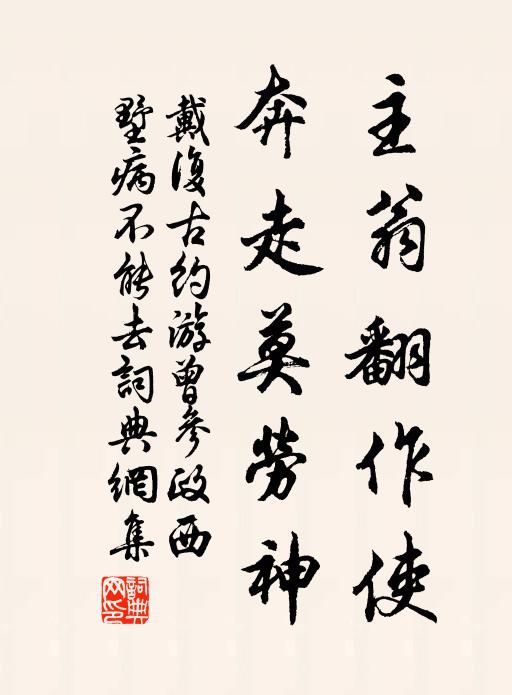 主翁翻作使
奔走莫勞神
戴復古約游曾參政西
墅病不能去詞典網集